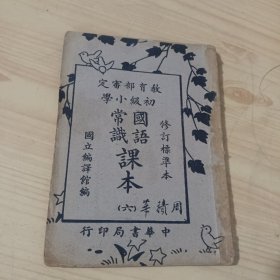 教育部審定
初級小學
國語
常識
課本
(六)
修訂標準本
國立編譯館編
周績華
中華書局印行